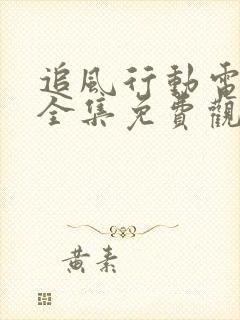 追風行動電
全集免費觀
黃素